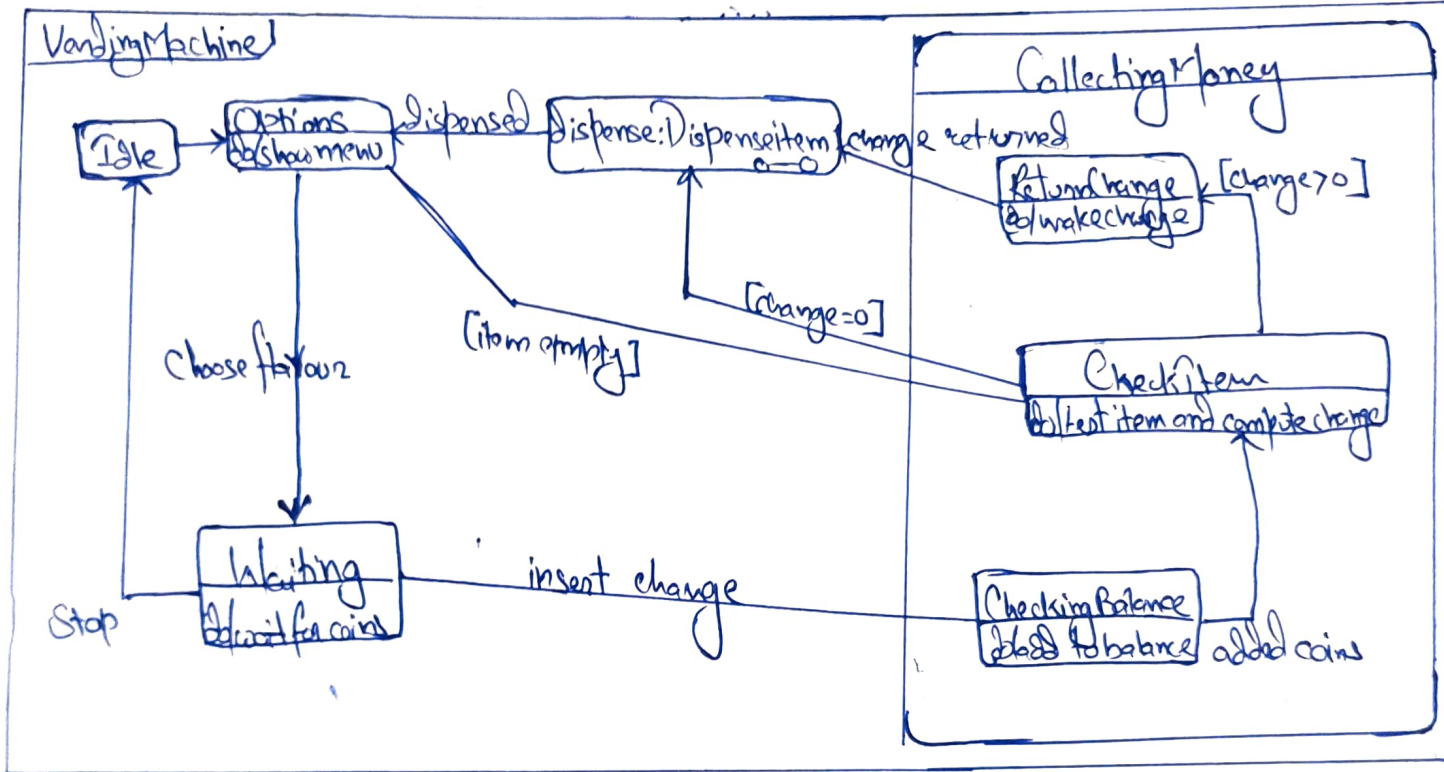 VendingMachine
CollectingMoney
Idle
Options
do/showmenu
dispensed
dispense:Dispenseitem
change returned
ReturnChange
do/makechange
[change>0]
[change=0]
[item empty]
Choose flavour
CheckItem
do/test item and compute change
Waiting
do/wait for coins
insert change
CheckingBalance
do/add to balance
added coins
Stop